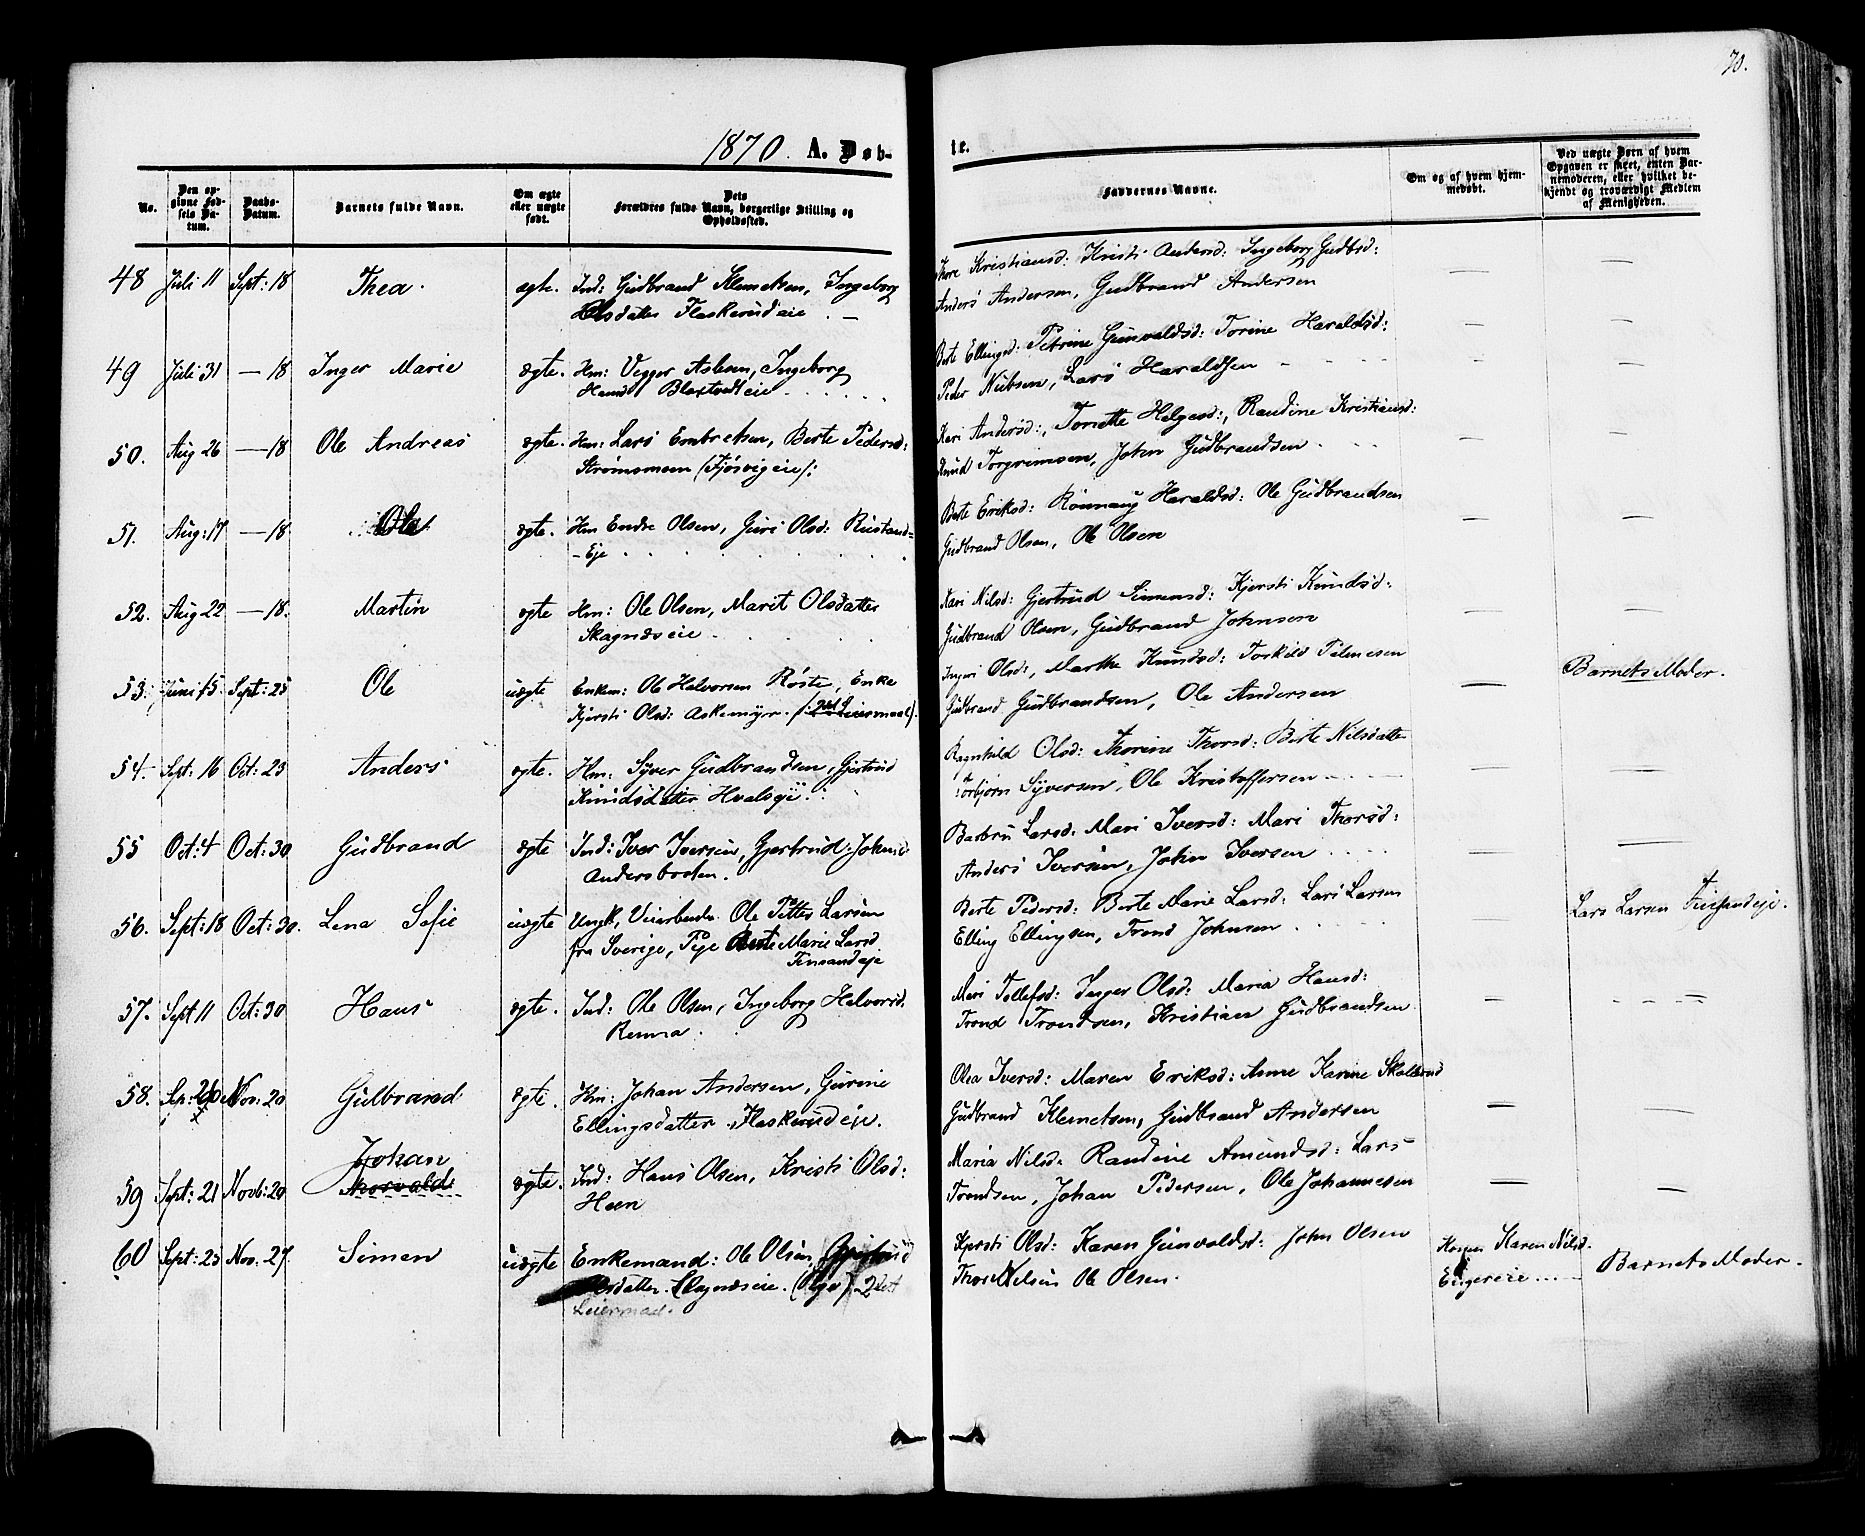 70.
1870. A. Døb-
te.
No.
Den opgivne Fødsels Datum.
Daabs-Datum.
Barnets fulde Navn.
Om ægte eller uægte født.
Dets Forældres fulde Navn, borgerlige Stilling og Opholdssted.
Faddernes Navne.
Om og af hvem hjemmedøbt.
Ved uægte Børn af hvem Opgaven er skeet, enten Barnemoderen, eller hvilket bekjendt og troværdigt Medlem af Menigheden.
48 Juli 11 Sept: 18 Thea. ægte. Ind: Gudbrand Klemetsen, Ingeborg
Olsdatter Flaskerudeie
Thore Kristiansd: Kristi Andersd: Ingeborg Gudbrd:
Anders Andersen, Gudbrand Andersen
49 Juli 31 — 18 Inger Marie ægte. Hm: Vegger Aslesen, Ingeborg
Hansd Blextvedteie
Berte Ellingsd: Petrine Gunvaldsd: Torine Haraldsd:
Peder Nubsen, Lars Haraldsen
50. Aug 26 — 18 Ole Andreas ægte. Hm: Lars Embretsen, Berte Pedersd:
Strømsmoen (Fjøsvigeie):
Kari Andersd:, Tonette Helgesd:, Randine Kristiansd:
Knud Torgrimsen, John Gudbrandsen
51. Aug: 17 — 18 Ole ægte. Hm Endre Olsen, Guri Olsd: Rustand=
- Eje
Berte Eriksd: Rønnaug Haraldsd: Ole Gudbrandsen
Gudbrand Olsen, Ole Olsen
52. Aug 22 — 18. Martin ægte Hm: Ole Olsen, Marit Olsdatter
Skagnæseie
Kari Nilsd: Gjertrud Simensd: Kjersti Knudsd:
Gudbrand Olsen, Gudbrand Johnsen
53. Juni 15. Sept: 25 Ole uægte Enkem: Ole Halvorsen Røste, Enke
Kjersti Olsd: Askemyr. (: 2det Leiermaal).
Ingri Olsd:, Marthe Knudsd: Torkild Pilmesen
Gudbrand Gudbrandsen, Ole Andersen
Barnets Moder.
54. Sept: 16 Oct: 23 Anders ægte. Hm: Syver Gudbrandsen, Gjertrud
Knudsdatter Hvalseje.
Ragnhild Olsd: Thorine Thorsd: Berte Nilsdatter
Torbjørn Syversen, Ole Kristoffersen
55 Oct: 4 Oct: 30 Gudbrand ægte Ind: Iver Iversen, Gjertrud Johnsd
Andersbraaten.
Barbru Larsd: Mari Iversd: Mari Thorsd:
Anders Iversen, John Iversen
56. Sept: 18 Oct: 30. Lena Sofie uægte Ungk, Veiarbeider Ole Petter Larsen
fra Sverige, Pige Berte Marie Larsd.
Finsandeje
Berte Pedersd: Berte Marie Larsd: Lars Larsen
Elling Ellingsen, Trond Johnsen
Lars Larsen Finsandeje.
57. Sept 11 Oct: 30 Hans ægte. Ind: Ole Olsen, Ingeborg Halvorsd.
Renna.
Mari Tollefsd: Inger Olsd: Maria Hansd:
Trond Trondsen, Kristian Gudbrandsen
58. Sep: 26 Nov: 20 Gulbrand ægte. Hm: Johan Andersen, Gurine
Ellingsdatter. Flaskerudeje.
Olea Iversd: Maren Eriksd: Anne Karine Skollerud
Gudbrand Klemetsen, Gudbrand Andersen
59 Sept: 21 Novb: 20 Johan
Thorvald
ægte. Ind: Hans Olsen, Kristi Olsd:
Heen
Maria Nilsd: Randine Amundsd: Lars
Trondsen, Johan Pedersen, Ole Johannesen
60 Sept: 23 Nov: 27. Simen uægte Enkemand: Ole Olsen, Gjertrud
Olsdatter. Skagnæseie. (Pige) 2det
Leiermaal.
Kjersti Olsd: Karen Gunvaldsd: John Olsen
Thore Nilsen Ole Olsen.
Karen Nilsd.
Engereie
Barnets Moder.